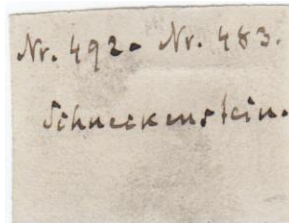 Nr. 492. Nr. 483.
Schneckenstein.